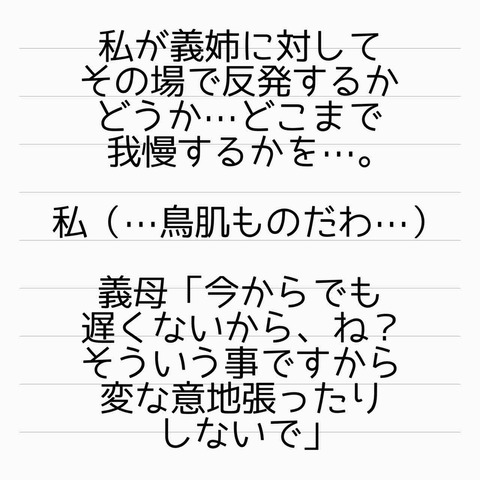 私が義姉に対して
その場で反発するか
どうか…どこまで
我慢するかを…。
私（…鳥肌ものだわ…）
義母「今からでも
遅くないから、ね？
そういう事ですから
変な意地張ったり
しないで」